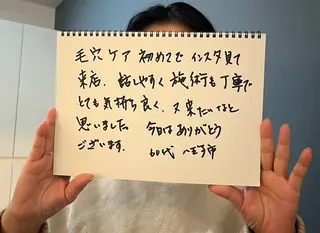 毛穴ケア初めてでインスタ見て
来店。話しやすく施術も丁寧で
とても気持ち良く、又来たいなと
思いました。今日はありがとう
ございます。60代 八王子市